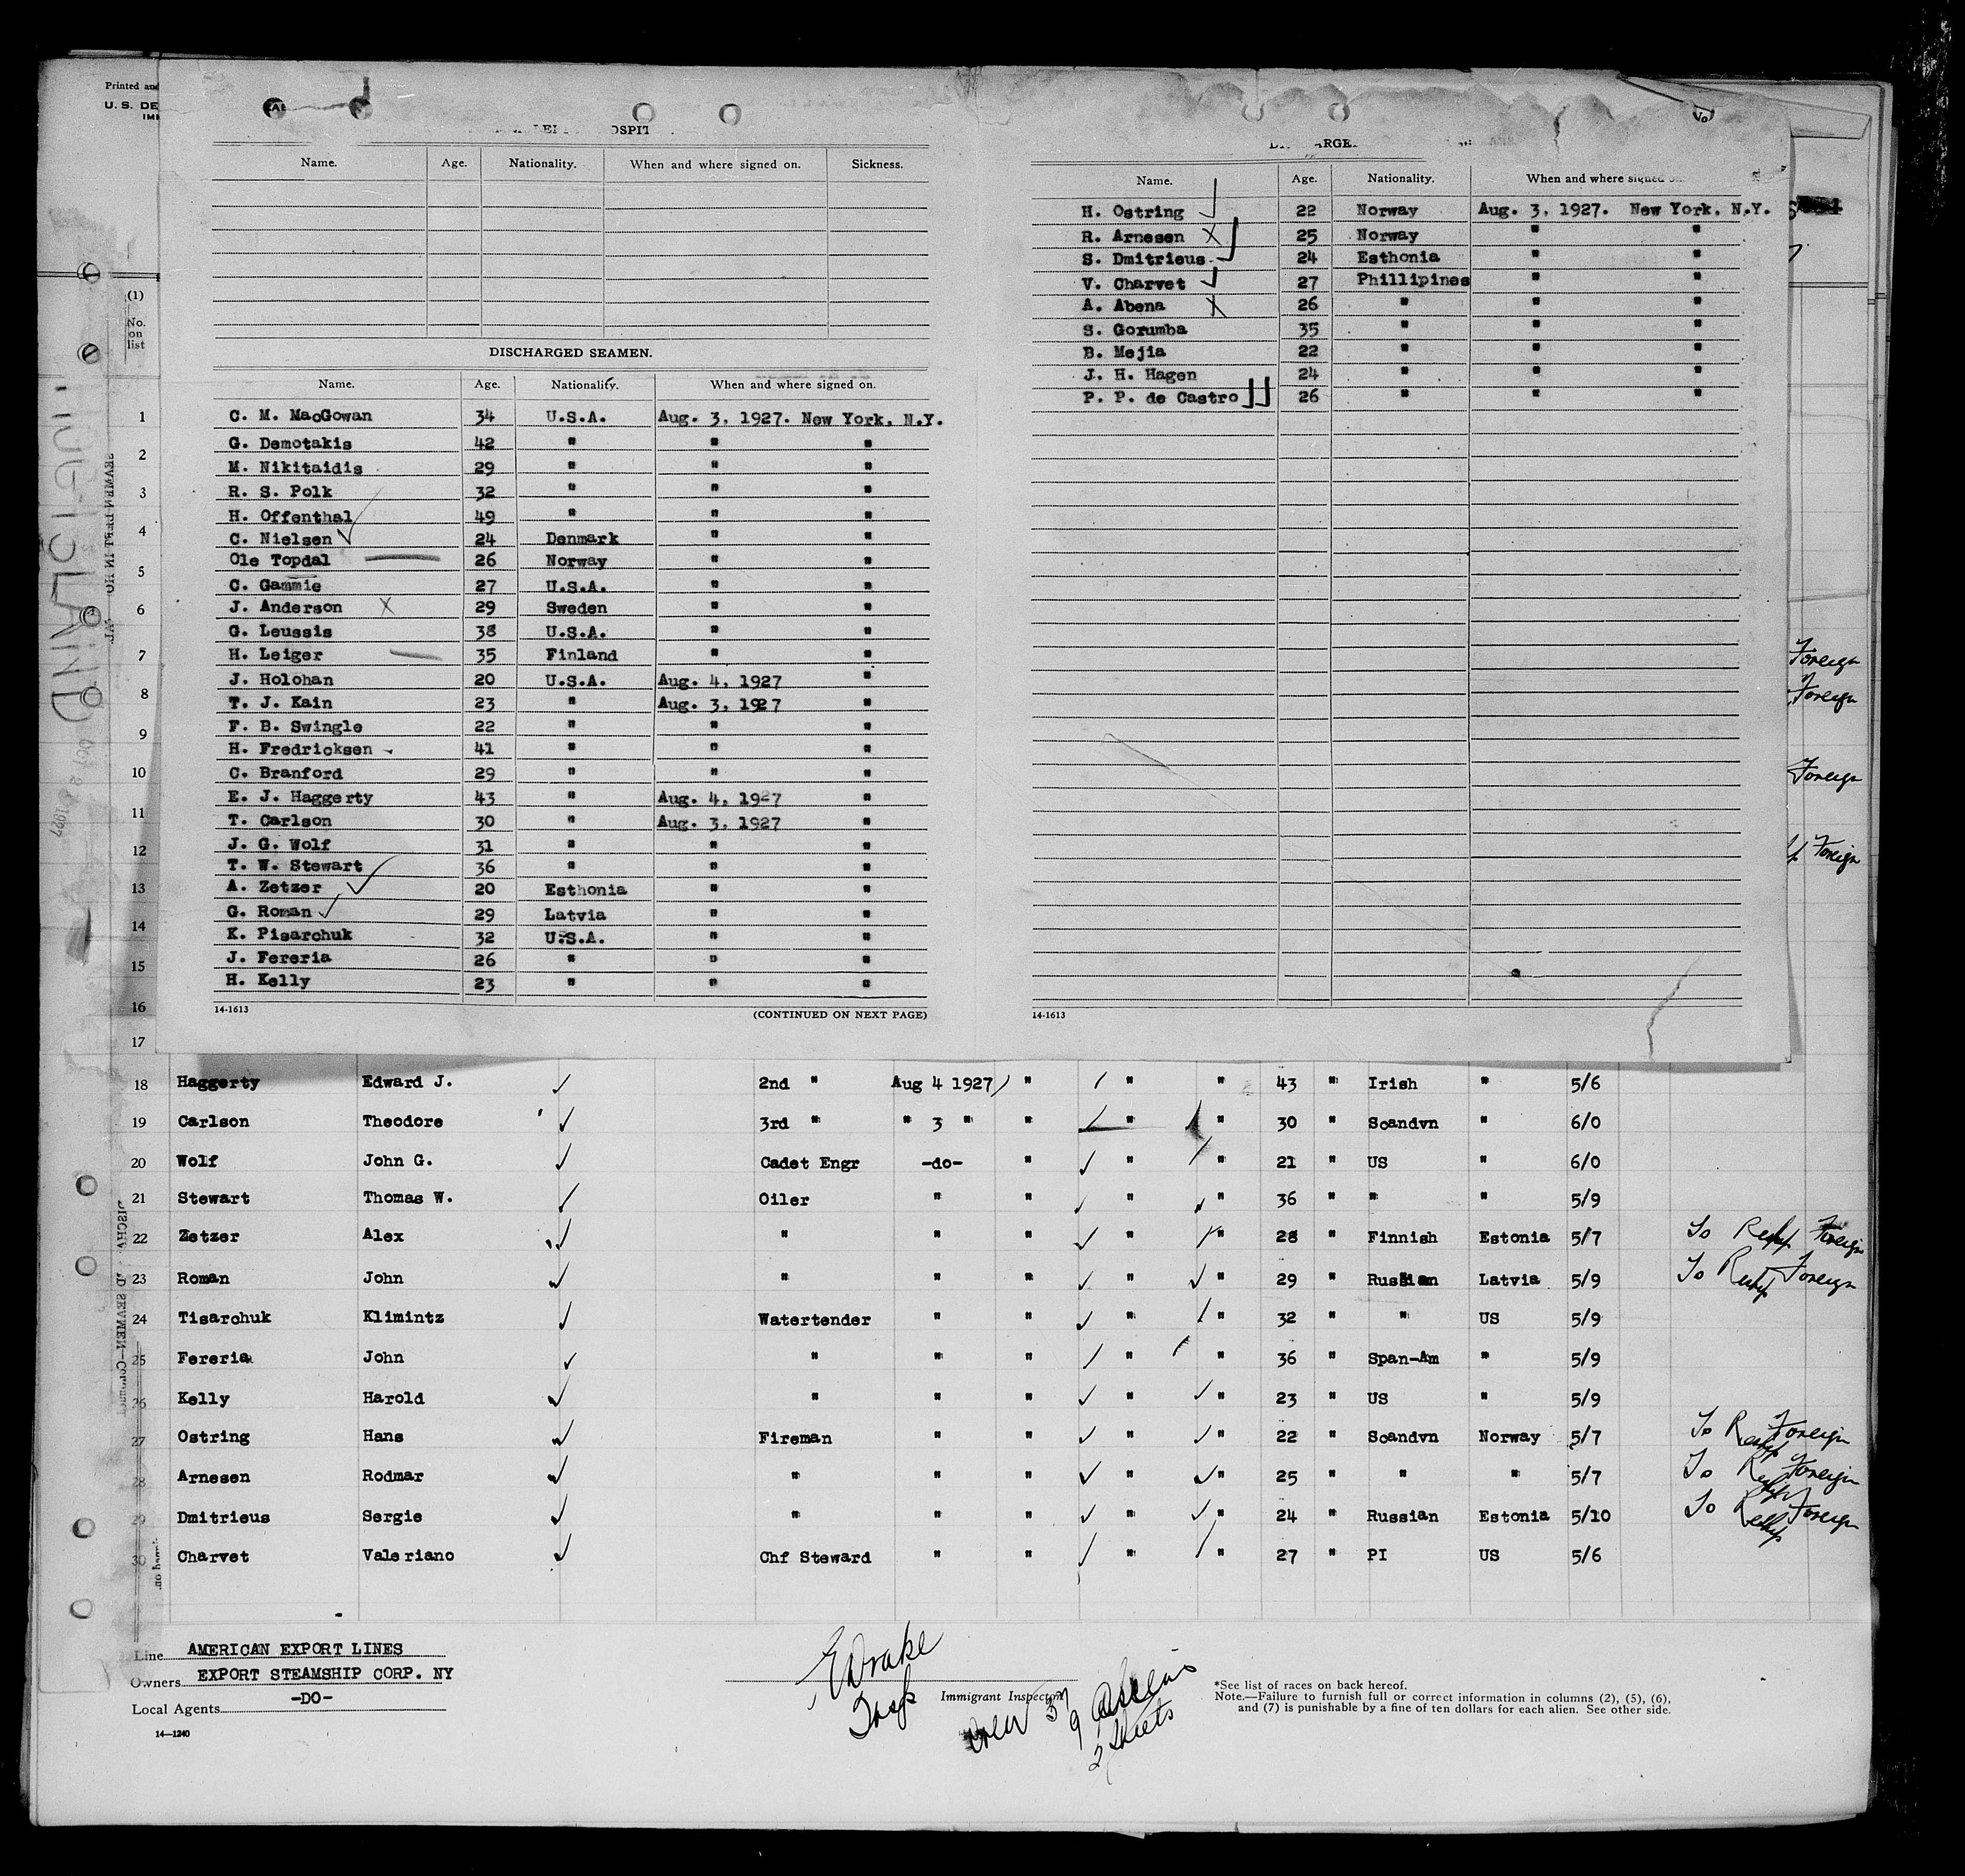 Printed and
U. S. DE
IMI
(1)
No.
on
list
Name. Age. Nationality. When and where signed on. Sickness.
DISCHARGED SEAMEN.
Name. Age. Nationality. When and where signed on.
C. M. MacGowan 34 U.S.A. Aug. 3, 1927. New York, N.Y.
G. Demotakis 42 " " "
M. Nikitaidis 29 " " "
R. S. Polk 32 " " "
H. Offenthal 49 " " "
C. Nielsen 24 Denmark " "
Ole Topdal 26 Norway " "
C. Gammie 27 U.S.A. " "
J. Anderson X 29 Sweden " "
G. Leussis 38 U.S.A. " "
H. Leiger 35 Finland " "
J. Holohan 20 U.S.A. Aug. 4, 1927 "
T. J. Kain 23 " Aug. 3, 1927 "
F. B. Swingle 22 " " "
H. Fredricksen 41 " " "
C. Branford 29 " " "
E. J. Haggerty 43 " Aug. 4, 1927 "
T. Carlson 30 " Aug. 3, 1927 "
J. G. Wolf 31 " " "
T. W. Stewart 36 " " "
A. Zetzer 20 Esthonia " "
G. Roman 29 Latvia " "
K. Pisarchuk 32 U.S.A. " "
J. Fereria 26 " " "
H. Kelly 23 " " "
14-1613 (CONTINUED ON NEXT PAGE)
Name. Age. Nationality. When and where signed
H. Ostring 22 Norway Aug. 3, 1927. New York, N.Y.
R. Arnesen X 25 Norway " "
S. Dmitrieus 24 Esthonia " "
V. Charvet 27 Phillipines " "
A. Abena X 26 " " "
S. Gorumba 35 " " "
B. Mejia 22 " " "
J. H. Hagen 24 " " "
P. P. de Castro 26 " " "
14-1613
1
2
3
4
5
6
7 Foreign
8 Foreign
9
10 Foreign
11
12 Foreign
13
14
15
16
17
18 Haggerty Edward J. 2nd " Aug 4 1927 " " " 43 " Irish " 5/6
19 Carlson Theodore 3rd " " 3 " " " " 30 " Scandvn " 6/0
20 Wolf John G. Cadet Engr -do- " " " 21 " US " 6/0
21 Stewart Thomas W. Oiler " " " " 36 " " " 5/9
22 Zetzer Alex " " " " " 28 " Finnish Estonia 5/7 To Reshp Foreign
23 Roman John " " " " " 29 " Russian Latvia 5/9 To Reshp Foreign
24 Tisarchuk Klimintz Watertender " " " " 32 " " US 5/9
25 Fereria John " " " " " 36 " Span-Am " 5/9
26 Kelly Harold " " " " " 23 " US " 5/9
27 Ostring Hans Fireman " " " " 22 " Scandvn Norway 5/7 To Reshp Foreign
28 Arnesen Rodmar " " " " " 25 " " " 5/7 To Reshp Foreign
29 Dmitrieus Sergie " " " " " 24 " Russian Estonia 5/10 To Reshp Foreign
30 Charvet Valeriano Chf Steward " " " " 27 " PI US 5/6
Line AMERICAN EXPORT LINES
Owners EXPORT STEAMSHIP CORP. NY
Local Agents -DO-
14—1240
EDrake
Insp
Immigrant Inspector
Crew 37
9 Aliens
2 Sheets
*See list of races on back hereof.
Note.—Failure to furnish full or correct information in columns (2), (5), (6),
and (7) is punishable by a fine of ten dollars for each alien. See other side.